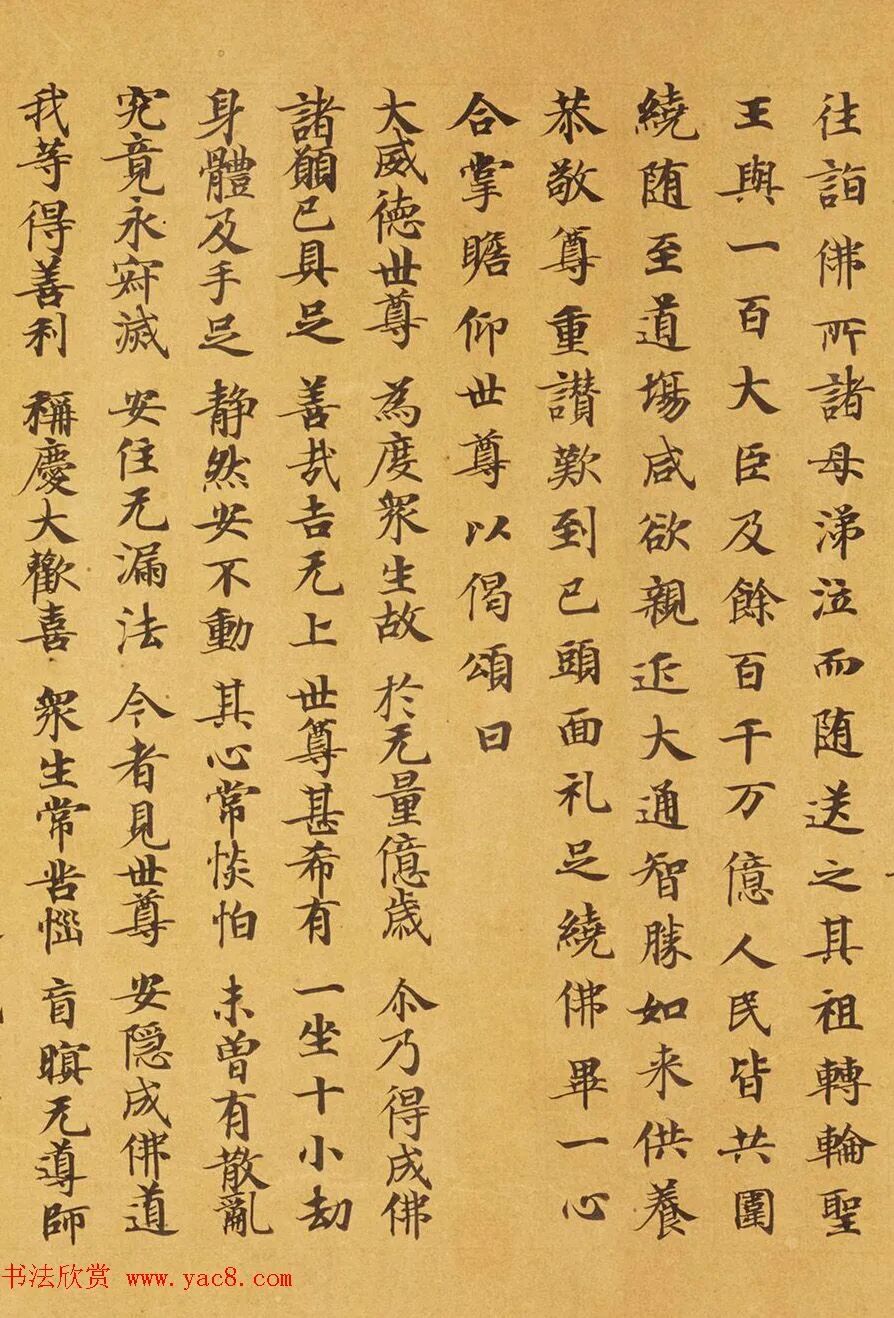 往詣佛所諸母涕泣而随送之其祖轉輪聖
王與一百大臣及餘百千万億人民皆共圍
繞随至道場咸欲親近大通智勝如来供養
恭敬尊重讃歎到已頭面礼足繞佛畢一心
合掌瞻仰世尊以偈頌曰
大威徳世尊 為度衆生故 於无量億歳 尒乃得成佛
諸願已具足 善哉吉无上 世尊甚希有 一坐十小劫
身體及手足 静然安不動 其心常惔怕 未曽有散亂
究竟永寂滅 安住无漏法 今者見世尊 安隠成佛道
我等得善利 稱慶大歡喜 衆生常苦惱 盲暝无導師
书法欣赏 www.yac8.com